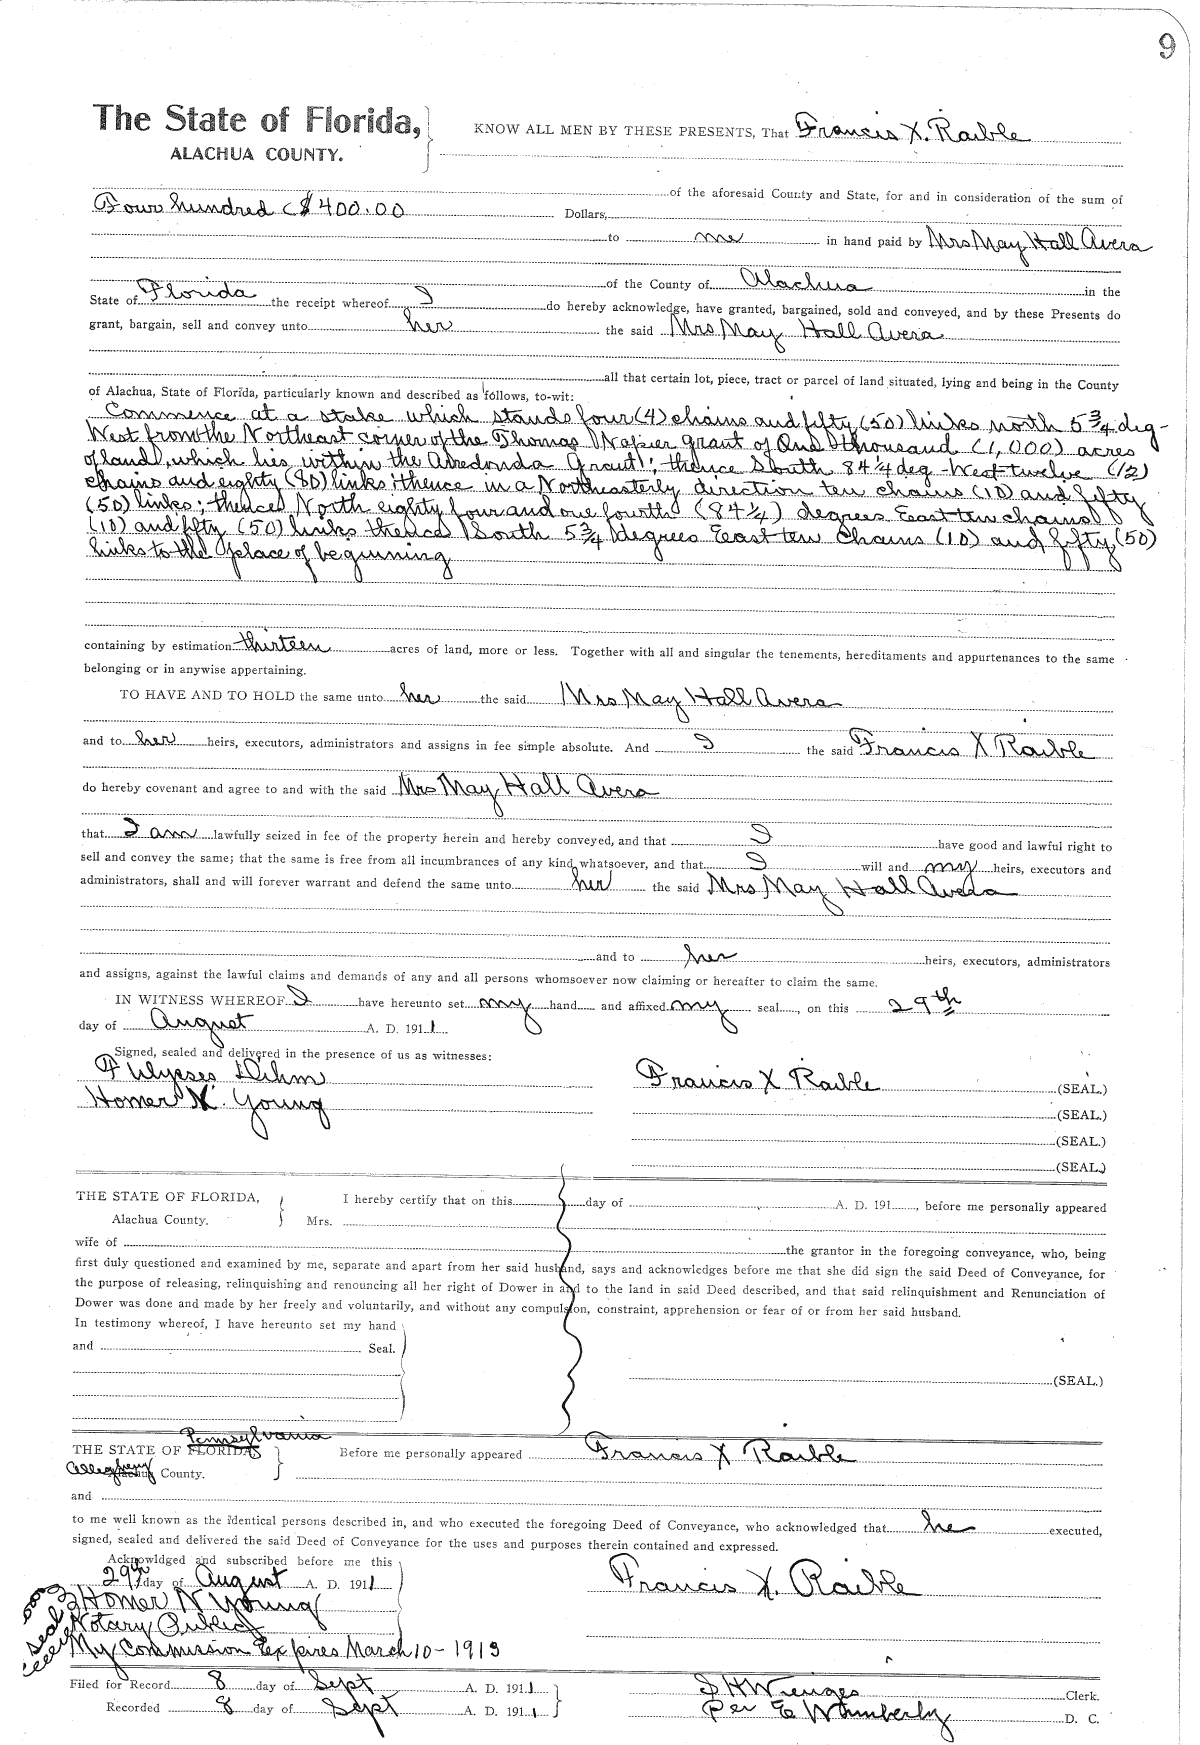 9
The State of Florida,
ALACHUA COUNTY.
KNOW ALL MEN BY THESE PRESENTS, That Francis X. Raible
of the aforesaid County and State, for and in consideration of the sum of
Four hundred ($400.00 Dollars,
to me in hand paid by Mrs May Hall Avera
of the County of Alachua in the
State of Florida the receipt whereof I do hereby acknowledge, have granted, bargained, sold and conveyed, and by these Presents do
grant, bargain, sell and convey unto her the said Mrs May Hall Avera
all that certain lot, piece, tract or parcel of land situated, lying and being in the County
of Alachua, State of Florida, particularly known and described as follows, to-wit:
Commence at a stake which stands four (4) chains and fifty (50) links north 5 3/4 deg-
West from the Northeast corner of the Thomas Napier grant of One thousand (1,000) acres
of land, which lies within the Arredonda Grant; thence South 84 1/4 deg-West twelve (12)
chains and eighty (80) links; thence in a Northeasterly direction ten chains (10) and fifty
(50) links; thence North eighty four and one fourth (84 1/4) degrees East ten chains
(10) and fifty (50) links thence South 5 3/4 degrees East ten chains (10) and fifty (50)
links to the place of beginning
containing by estimation thirteen acres of land, more or less. Together with all and singular the tenements, hereditaments and appurtenances to the same
belonging or in anywise appertaining.
TO HAVE AND TO HOLD the same unto her the said Mrs May Hall Avera
and to her heirs, executors, administrators and assigns in fee simple absolute. And I the said Francis X Raible
do hereby covenant and agree to and with the said Mrs May Hall Avera
that I am lawfully seized in fee of the property herein and hereby conveyed, and that I have good and lawful right to
sell and convey the same; that the same is free from all incumbrances of any kind whatsoever, and that I will and my heirs, executors and
administrators, shall and will forever warrant and defend the same unto her the said Mrs May Hall Avera
and to her heirs, executors, administrators
and assigns, against the lawful claims and demands of any and all persons whomsoever now claiming or hereafter to claim the same.
IN WITNESS WHEREOF I have hereunto set my hand and affixed my seal, on this 29th
day of August A. D. 1911.
Signed, sealed and delivered in the presence of us as witnesses:
F Ulysses Dihm Francis X Raible (SEAL.)
Homer N. Young (SEAL.)
(SEAL.)
(SEAL.)
THE STATE OF FLORIDA, I hereby certify that on this day of A. D. 191, before me personally appeared
Alachua County. Mrs.
wife of the grantor in the foregoing conveyance, who, being
first duly questioned and examined by me, separate and apart from her said husband, says and acknowledges before me that she did sign the said Deed of Conveyance, for
the purpose of releasing, relinquishing and renouncing all her right of Dower in and to the land in said Deed described, and that said relinquishment and Renunciation of
Dower was done and made by her freely and voluntarily, and without any compulsion, constraint, apprehension or fear of or from her said husband.
In testimony whereof, I have hereunto set my hand
and Seal.
(SEAL.)
Pennsylvania
THE STATE OF FLORIDA Before me personally appeared Francis X Raible
Allegheny County.
and
to me well known as the identical persons described in, and who executed the foregoing Deed of Conveyance, who acknowledged that he executed,
signed, sealed and delivered the said Deed of Conveyance for the uses and purposes therein contained and expressed.
Acknowldged and subscribed before me this
29th day of August A. D. 1911 Francis X. Raible
Homer N Young
Notary Public
Seal
My Commission Expires March 10-1913
Filed for Record 8 day of Sept A. D. 1911 S H Wienges Clerk.
Recorded 8 day of Sept A. D. 1911 per E Wimberly D. C.